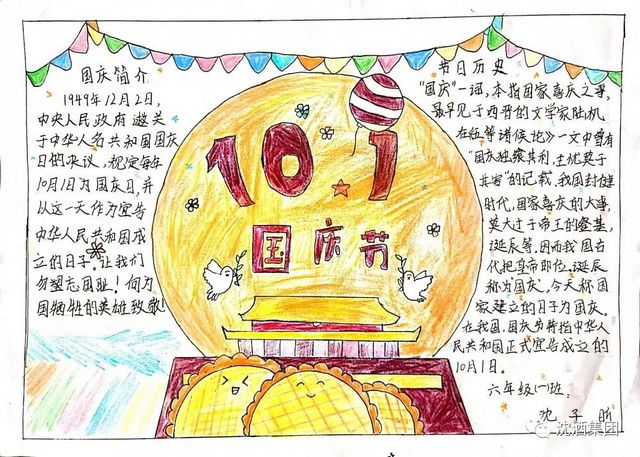 国庆简介
1949年12月2日，
中央人民政府通关
于中华人名共和国国庆
日的决议，规定每年
10月1日为国庆日，并
以这一天作为宣告
中华人民共和国成
立的日子。让我们
勿望忘国耻！向为
国牺牲的英雄致敬！
10.1
国庆节
节日历史
“国庆”一词，本指国家喜庆之事，
最早见于西晋的文学家陆机
在《五等诸侯论》一文中曾有
“国庆独飨其利，主忧莫于
共害”的记载，我国封建
时代，国家喜庆的大事，
莫大过于帝王的登基，
诞辰等，因而我国古
代把皇帝即位，诞辰
称为国庆，今天称国
家建立的日子为国庆，
在我国，国庆节特指中华人
民共和国正式宣告成立的
10月1日。
六年级(一)班
沈子昕
沈酒集团